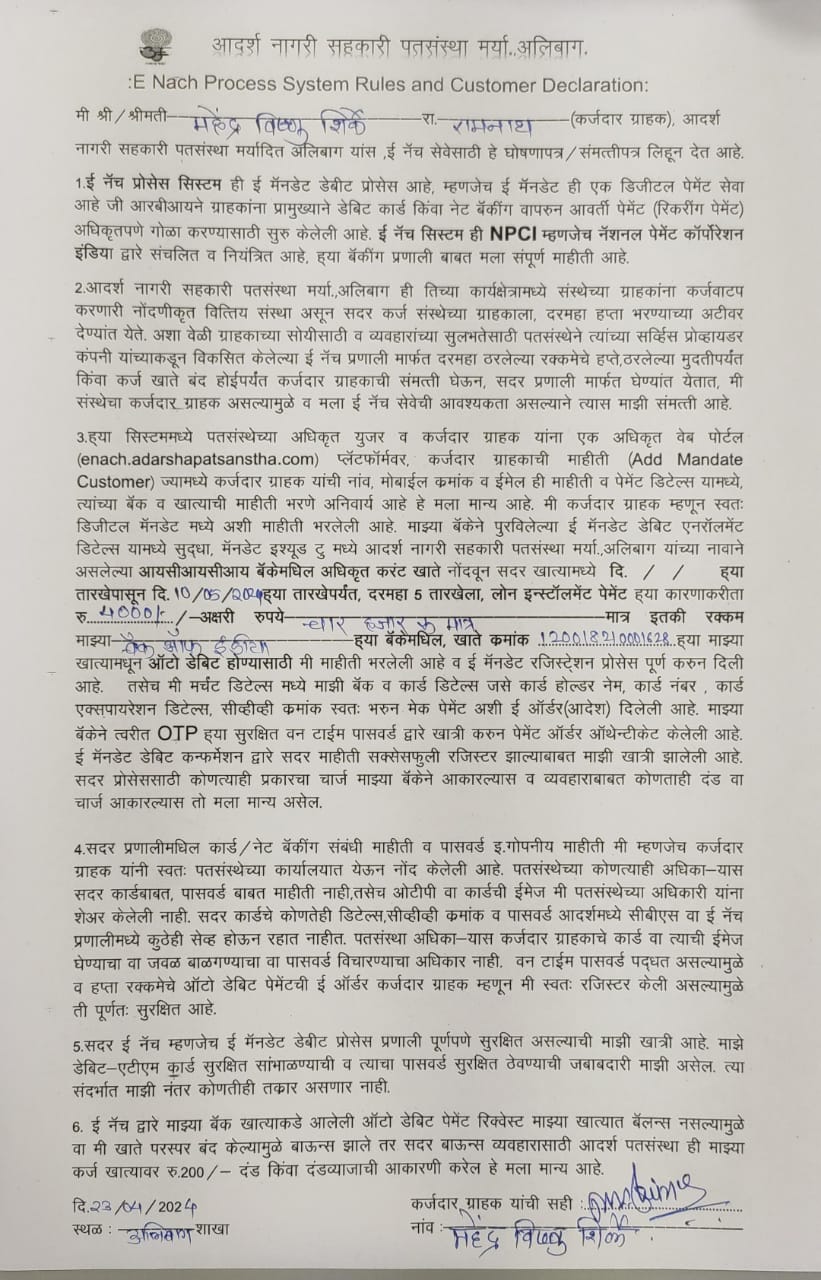 आदर्श नागरी सहकारी पतसंस्था मर्या..अलिबाग.
:E Nach Process System Rules and Customer Declaration:
मी श्री/श्रीमती महेंद्र विष्णू शिर्के रा. रामनाथ (कर्जदार ग्राहक), आदर्श
नागरी सहकारी पतसंस्था मर्यादित अलिबाग यांस ,ई नॅच सेवेसाठी हे घोषणापत्र/संमत्तीपत्र लिहून देत आहे.
1.ई नॅच प्रोसेस सिस्टम ही ई मॅनडेट डेबीट प्रोसेस आहे, म्हणजेच ई मॅनडेट ही एक डिजीटल पेमेंट सेवा
आहे जी आरबीआयने ग्राहकांना प्रामुख्याने डेबिट कार्ड किंवा नेट बॅकींग वापरुन आवर्ती पेमेंट (रिकरींग पेमेंट)
अधिकृतपणे गोळा करण्यासाठी सुरु केलेली आहे. ई नॅच सिस्टम ही NPCI म्हणजेच नॅशनल पेमेंट कॉर्पोरेशन
इंडिया द्वारे संचलित व नियंत्रित आहे, हया बॅकींग प्रणाली बाबत मला संपूर्ण माहीती आहे.
2.आदर्श नागरी सहकारी पतसंस्था मर्या.,अलिबाग ही तिच्या कार्यक्षेत्रामध्ये संस्थेच्या ग्राहकांना कर्जवाटप
करणारी नोंदणीकृत वित्तिय संस्था असून सदर कर्ज संस्थेच्या ग्राहकाला, दरमहा हप्ता भरण्याच्या अटीवर
देण्यांत येते. अशा वेळी ग्राहकाच्या सोयीसाठी व व्यवहारांच्या सुलभतेसाठी पतसंस्थेने त्यांच्या सर्व्हिस प्रोव्हायडर
कंपनी यांच्याकडून विकसित केलेल्या ई नॅच प्रणाली मार्फत दरमहा ठरलेल्या रक्कमेचे हप्ते,ठरलेल्या मुदतीपर्यंत
किंवा कर्ज खाते बंद होईपर्यंत कर्जदार ग्राहकाची संमत्ती घेऊन, सदर प्रणाली मार्फत घेण्यांत येतात, मी
संस्थेचा कर्जदार ग्राहक असल्यामुळे व मला ई नॅच सेवेची आवश्यकता असल्याने त्यास माझी संमत्ती आहे.
3.हया सिस्टममध्ये पतसंस्थेच्या अधिकृत युजर व कर्जदार ग्राहक यांना एक अधिकृत वेब पोर्टल
(enach.adarshapatsanstha.com) प्लॅटफॉर्मवर, कर्जदार ग्राहकाची माहीती (Add Mandate
Customer) ज्यामध्ये कर्जदार ग्राहक यांची नांव, मोबाईल क्रमांक व ईमेल ही माहीती व पेमेंट डिटेल्स यामध्ये,
त्यांच्या बॅक व खात्याची माहीती भरणे अनिवार्य आहे हे मला मान्य आहे. मी कर्जदार ग्राहक म्हणून स्वतः
डिजीटल मॅनडेट मध्ये अशी माहीती भरलेली आहे. माझ्या बॅकेने पुरविलेल्या ई मॅनडेट डेबिट एनरॉलमेंट
डिटेल्स यामध्ये सुद्धा, मॅनडेट इश्यूड टु मध्ये आदर्श नागरी सहकारी पतसंस्था मर्या.,अलिबाग यांच्या नावाने
असलेल्या आयसीआयसीआय बॅकेमधिल अधिकृत करंट खाते नोंदवून सदर खात्यामध्ये दि. / / हया
तारखेपासून दि. 10/05/2024 हया तारखेपर्यंत, दरमहा 5 तारखेला, लोन इन्स्टॉलमेंट पेमेंट हया कारणाकरीता
रु 4000/- /-अक्षरी रुपये चार हजार रु मात्र मात्र इतकी रक्कम
माझ्या बँक ऑफ इंडिया हया बॅकेमधिल, खाते क्रमांक 120018210001628 हया माझ्या
खात्यामधून ऑटो डेबिट होण्यासाठी मी माहीती भरलेली आहे व ई मॅनडेट रजिस्ट्रेशन प्रोसेस पूर्ण करुन दिली
आहे. तसेच मी मर्चंट डिटेल्स मध्ये माझी बॅक व कार्ड डिटेल्स जसे कार्ड होल्डर नेम, कार्ड नंबर , कार्ड
एक्सपायरेशन डिटेल्स, सीव्हीव्ही क्रमांक स्वतः भरुन मेक पेमेंट अशी ई ऑर्डर(आदेश) दिलेली आहे. माझ्या
बॅकेने त्वरीत OTP हया सुरक्षित वन टाईम पासवर्ड द्वारे खात्री करुन पेमेंट ऑर्डर ऑथेन्टीकेट केलेली आहे.
ई मॅनडेट डेबिट कन्फर्मेशन द्वारे सदर माहीती सक्सेसफुली रजिस्टर झाल्याबाबत माझी खात्री झालेली आहे.
सदर प्रोसेससाठी कोणत्याही प्रकारचा चार्ज माझ्या बॅकेने आकारल्यास व व्यवहाराबाबत कोणताही दंड वा
चार्ज आकारल्यास तो मला मान्य असेल.
4.सदर प्रणालीमधिल कार्ड/नेट बॅकींग संबंधी माहीती व पासवर्ड इ.गोपनीय माहीती मी म्हणजेच कर्जदार
ग्राहक यांनी स्वतः पतसंस्थेच्या कार्यालयात येऊन नोंद केलेली आहे. पतसंस्थेच्या कोणत्याही अधिका–यास
सदर कार्डबाबत, पासवर्ड बाबत माहीती नाही,तसेच ओटीपी वा कार्डची ईमेज मी पतसंस्थेच्या अधिकारी यांना
शेअर केलेली नाही. सदर कार्डचे कोणतेही डिटेल्स,सीव्हीव्ही क्रमांक व पासवर्ड आदर्शमध्ये सीबीएस वा ई नॅच
प्रणालीमध्ये कुठेही सेव्ह होऊन रहात नाहीत. पतसंस्था अधिका–यास कर्जदार ग्राहकाचे कार्ड वा त्याची ईमेज
घेण्याचा वा जवळ बाळगण्याचा वा पासवर्ड विचारण्याचा अधिकार नाही. वन टाईम पासवर्ड पद्धत असल्यामुळे
व हप्ता रक्कमेचे ऑटो डेबिट पेमेंटची ई ऑर्डर कर्जदार ग्राहक म्हणून मी स्वतः रजिस्टर केली असल्यामुळे
ती पूर्णतः सुरक्षित आहे.
5.सदर ई नॅच म्हणजेच ई मॅनडेट डेबीट प्रोसेस प्रणाली पूर्णपणे सुरक्षित असल्याची माझी खात्री आहे. माझे
डेबिट–एटीएम कार्ड सुरक्षित सांभाळण्याची व त्याचा पासवर्ड सुरक्षित ठेवण्याची जबाबदारी माझी असेल. त्या
संदर्भात माझी नंतर कोणतीही तक्रार असणार नाही.
6. ई नॅच द्वारे माझ्या बॅक खात्याकडे आलेली ऑटो डेबिट पेमेंट रिक्वेस्ट माझ्या खात्यात बॅलन्स नसल्यामुळे
वा मी खाते परस्पर बंद केल्यामुळे बाऊन्स झाले तर सदर बाऊन्स व्यवहारासाठी आदर्श पतसंस्था ही माझ्या
कर्ज खात्यावर रु.200/– दंड किंवा दंडव्याजाची आकारणी करेल हे मला मान्य आहे.
दि.23/04/2024 कर्जदार ग्राहक यांची सही :
स्थळ : अलिबाग शाखा नांव : महेंद्र विष्णु शिर्के